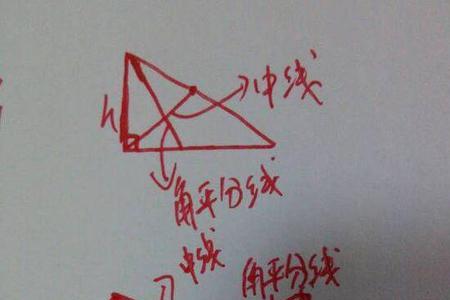 中线
h
角平分线
中线
角平分线